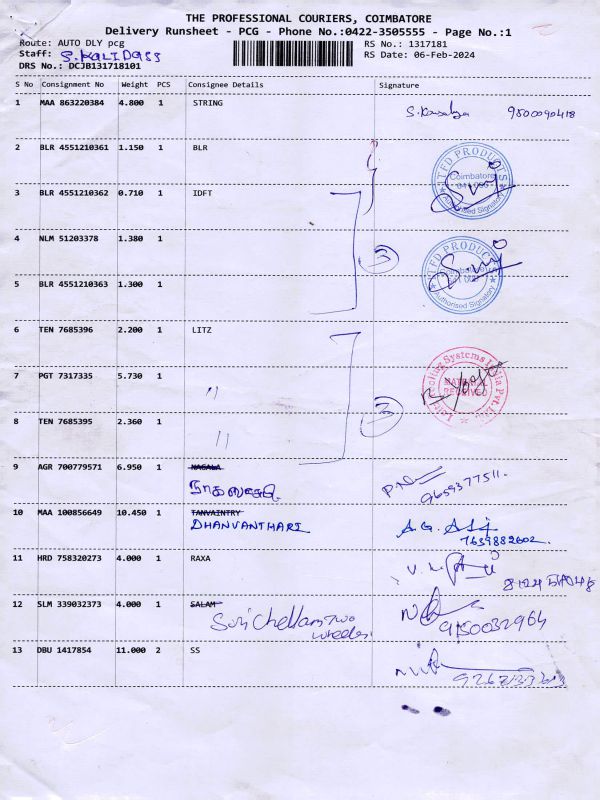 THE PROFESSIONAL COURIERS, COIMBATORE
Delivery Runsheet - PCG - Phone No.:0422-3505555 - Page No.:1
Route: AUTO DLY pcg RS No.: 1317181
Staff: S.KALIDASS RS Date: 06-Feb-2024
DRS No.: DCJB131718101
S No Consignment No Weight PCS Consignee Details Signature
1 MAA 863220384 4.800 1 STRING 9500090418
2 BLR 4551210361 1.150 1 BLR
3 BLR 4551210362 0.710 1 IDFT
4 NLM 51203378 1.380 1
3
5 BLR 4551210363 1.300 1
6 TEN 7685396 2.200 1 LITZ
7 PGT 7317335 5.730 1 "
3
8 TEN 7685395 2.360 1 "
9 AGR 700779571 6.950 1 NAGALA
9659377511.
10 MAA 100856649 10.450 1 TANVAINTRY
DHANVANTHARI
7639882602.
11 HRD 758320273 4.000 1 RAXA
12 SLM 339032373 4.000 1 SALAM
Suri Chellam Two
wheeler 9150032964
13 DBU 1417854 11.000 2 SS
TED PRODUCTS
Coimbatore
Authorised Signatory
TED PRODUCTS
Coimbatore
Authorised Signatory
Systems India Pvt. Ltd
MATERIAL
RECEIVED